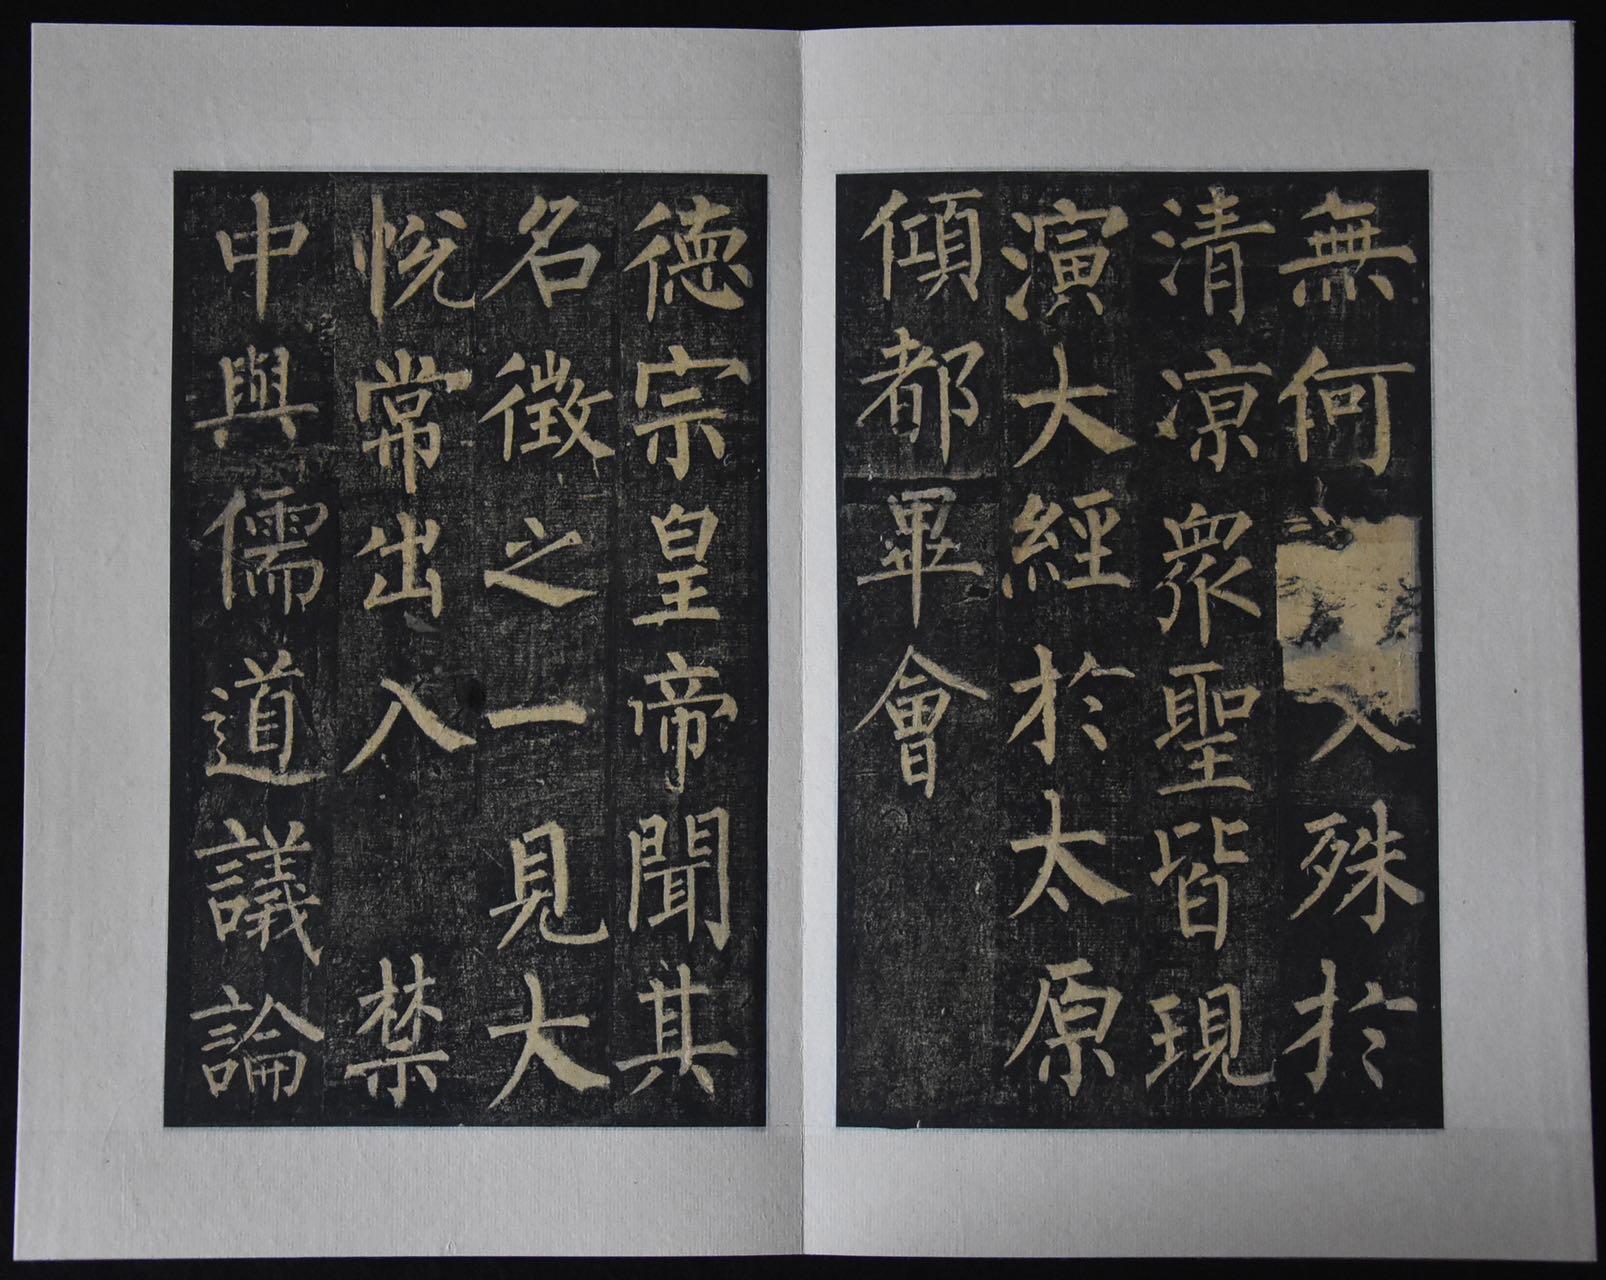 無何殊於
清涼衆聖皆現
演大經於太原
傾都畢會
德宗皇帝聞其
名徵之一見大
悅常出入禁
中與儒道議論